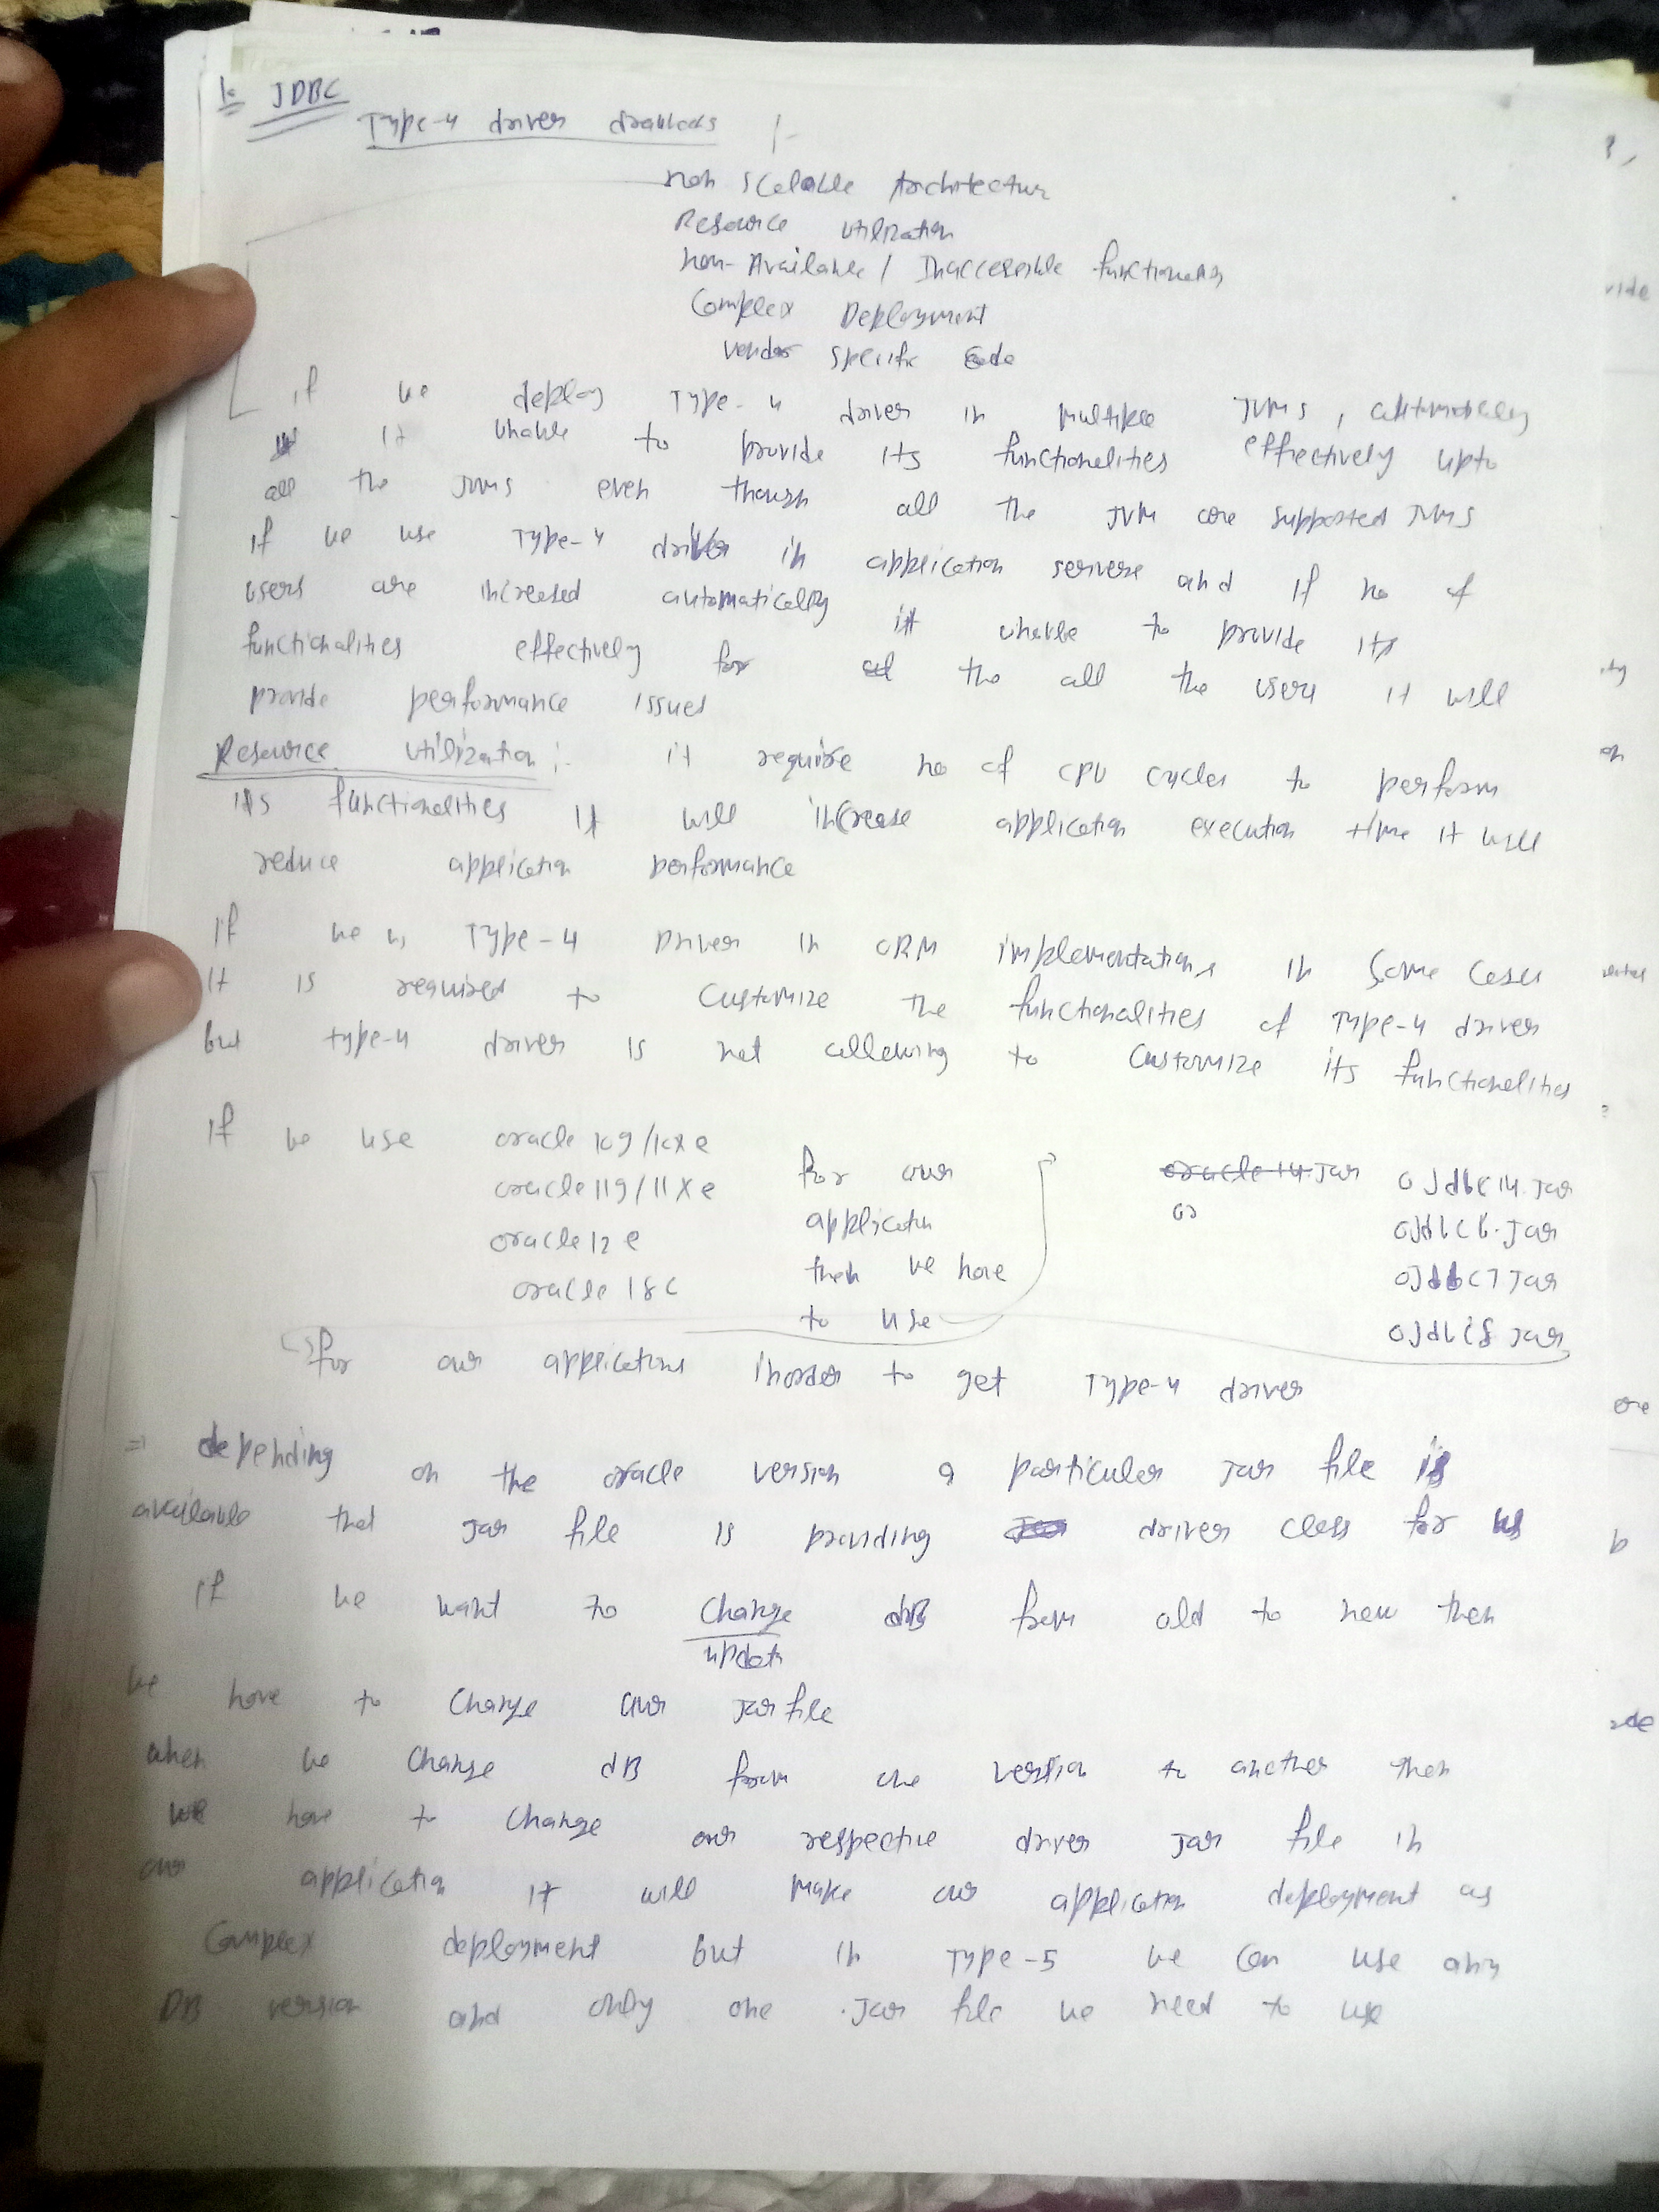 1. JDBC
Type-4 driver drawbacks :-
non scalable Architectur
Resource utilization
non-Available / Inaccessible functionality
Complex Deployment
vendor specific code
if we deploy Type-4 driver in multiple JVMs, automatically
it unable to provide its functionalities effectively upto
all the JVMs even though all the JVM are supported JVMs
if we use Type-4 driver in application servers and if no of
users are increased automatically it unable to provide its
functionalities effectively for the all the users it will
provide performance issues
Resource utilization :- it require no of CPU cycles to perform
its functionalities it will increase application execution time it will
reduce application performance
if we us Type-4 Driver in ORM implementations in some cases
it is required to customize the functionalities of Type-4 driver
but type-4 driver is not allowing to customize its functionalities
If we use oracle 10g/10xe for our oracle14.jar ojdbc14.jar
oracle 11g/11xe application or ojdbc6.jar
oracle 12c then we have ojdbc7 jar
oracle 18c to use ojdbc8 jar
for our applications inorder to get Type-4 driver
=> depending on the oracle version a particular jar file is
available that jar file is providing driver class for us
if we want to change dB from old to new then
updat
we have to change our jar file
when we change dB from one version to another then
we have to change our respective driver jar file in
our application it will make our application deployment as
complex deployment but in Type-5 we can use any
DB version and only one .jar file we need to use